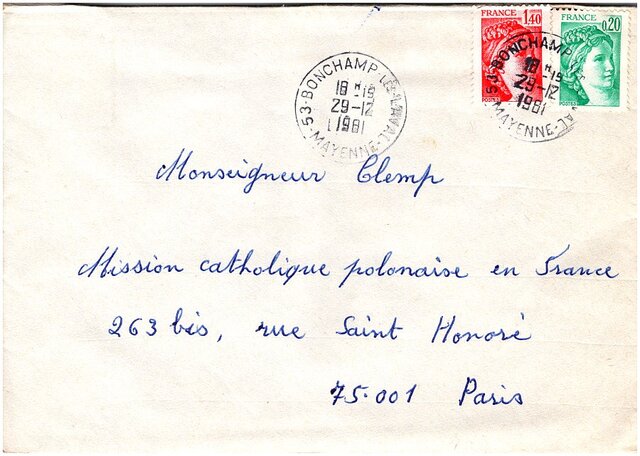 FRANCE 1,40
FRANCE 0,20
POSTES
POSTES
53-BONCHAMP-LÈS-LAVAL
18 H 15
29-12
1981
-MAYENNE-
53-BONCHAMP
18 H 15
29-12
1981
MAYENNE-
Monseigneur Clemp
Mission catholique polonaise en France
263 bis, rue Saint Honoré
75.001 Paris